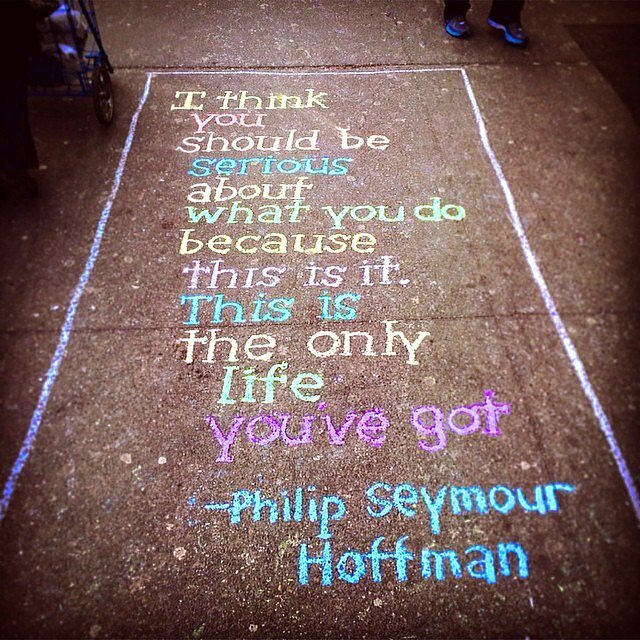 I think
you
should be
serious
about
what you do
because
this is it.
This is
the only
life
you've got
-Philip Seymour
Hoffman